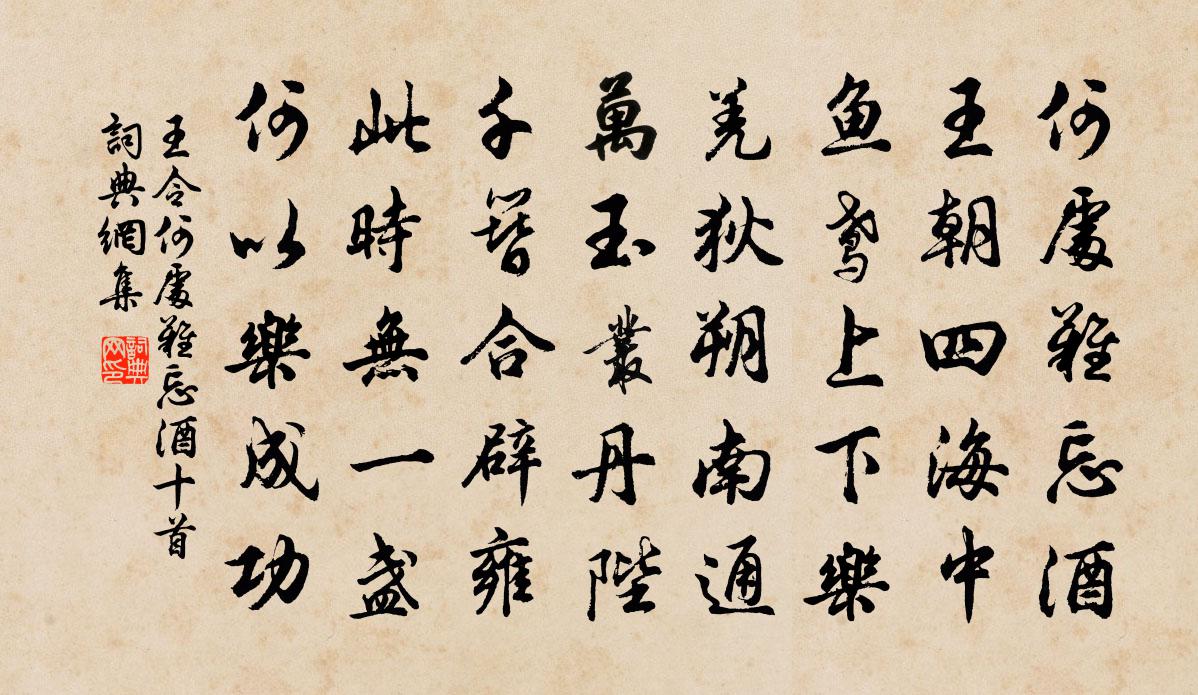 何處難忘酒
王朝四海中
鱼鸢上下樂
羌狄朔南通
萬玉叢丹陛
千簪合辟雍
此時無一盏
何以樂成功
王令何處難忘酒十首
詞典網集
詞典网印